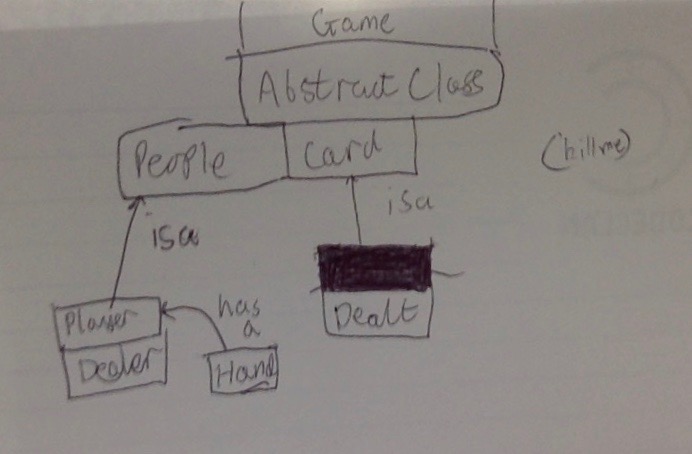 Game
Abstract Class
People
Card
isa
isa
Player
Dealer
has
a
Hand
Dealt